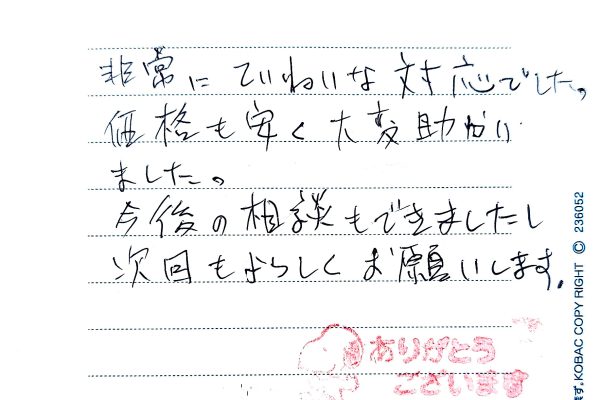 非常にていねいな対応でした。
価格も安く大変助かり
ました。
今後の相談もできましたし
次回もよろしくお願いします。
ありがとう
ございます
す。KOBAC COPY RIGHT © 236052